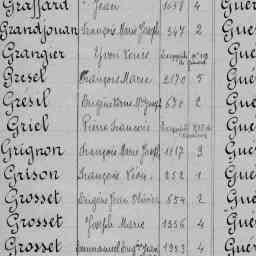 Graffard Jean 1038 4 Guér
Grandjouan François Marie Joseph 347 2 Gue
Grangier Yvon Louis Gue
Gresel François Marie 2170 5 Gue
Grésil Eugène 670 2 Gue
Griel Pierre François Gue
Grignon François Marie Joseph 1117 3 Gue
Grison François 252 1 Gue
Grosset Eugène Jean Olivier 654 2 Gue
Grosset Joseph Marie 1356 4 Gue
Grosset Emmanuel Eugène Jean 1923 4 Guér